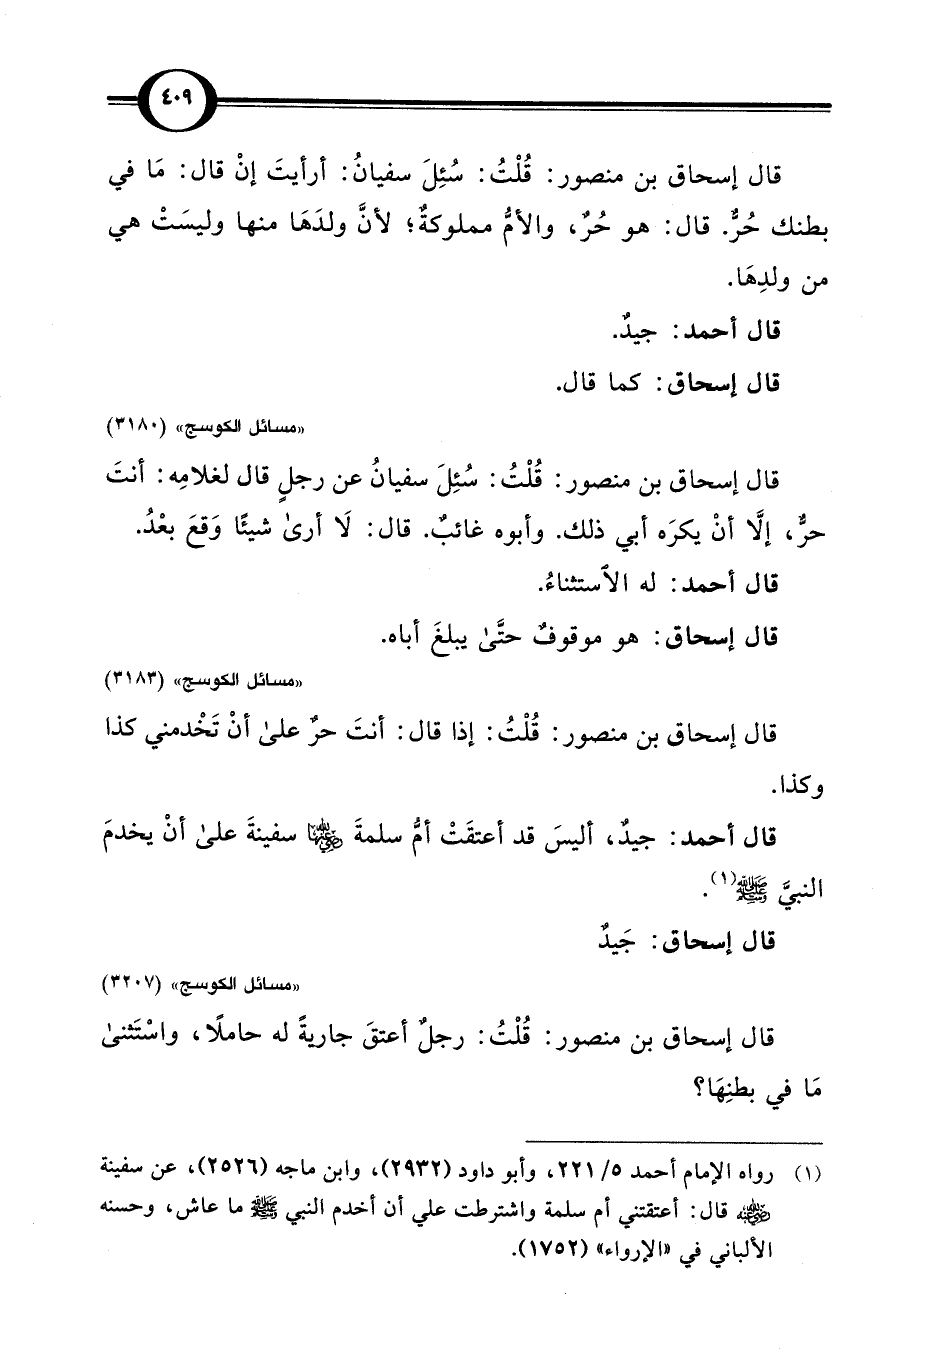 ٤٠٩
قال إسحاق بن منصور: قُلْتُ: سُئِلَ سفيانُ: أرأيتَ إنْ قال: مَا في
بطنك حُرٌّ. قال: هو حُرٌ، والأمُّ مملوكةٌ؛ لأنَّ ولدَهَا منها وليسَتْ هي
من ولدِهَا.
قال أحمد: جيدٌ.
قال إسحاق: كما قال.
«مسائل الكوسج» (٣١٨٠)
قال إسحاق بن منصور: قُلْتُ: سُئِلَ سفيانُ عن رجلٍ قال لغلامِه: أنتَ
حرٌّ، إلَّا أنْ يكرَه أبي ذلك. وأبوه غائبٌ. قال: لَا أرىٰ شيئًا وَقعَ بعْدُ.
قال أحمد: له الاٌستثناءُ.
قال إسحاق: هو موقوفٌ حتَّىٰ يبلغَ أباه.
«مسائل الكوسج» (٣١٨٣)
قال إسحاق بن منصور: قُلْتُ: إذا قال: أنتَ حرٌ علىٰ أنْ تَخْدمني كذا
وكذا.
قال أحمد: جيدٌ، أليسَ قد أعتقَتْ أمُّ سلمةَ رضي الله عنها سفينةَ علىٰ أنْ يخدمَ
النبيَّ ﷺ(١).
قال إسحاق: جَيدٌ
«مسائل الكوسج» (٣٢٠٧)
قال إسحاق بن منصور: قُلْتُ: رجلٌ أعتقَ جاريةً له حاملًا، واسْتَثنىٰ
مَا في بطنِهَا؟
(١) رواه الإمام أحمد ٥/ ٢٢١، وأبو داود (٢٩٣٢)، وابن ماجه (٢٥٢٦)، عن سفينة
رضي الله عنه قال: أعتقتني أم سلمة واشترطت علي أن أخدم النبي ﷺ ما عاش، وحسنه
الألباني في «الإرواء» (١٧٥٢).